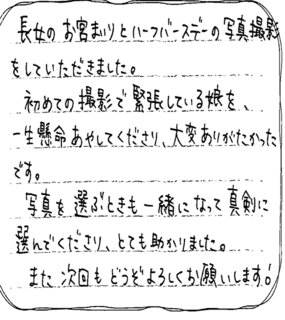 長女のお宮まいりとハーフバースデーの写真撮影
をしていただきました。
初めての撮影で緊張している娘を、
一生懸命あやしてくださり、大変ありがたかった
です。
写真を選ぶときも一緒になって真剣に
選んでくださり、とても助かりました。
また次回もどうぞよろしくお願いします!